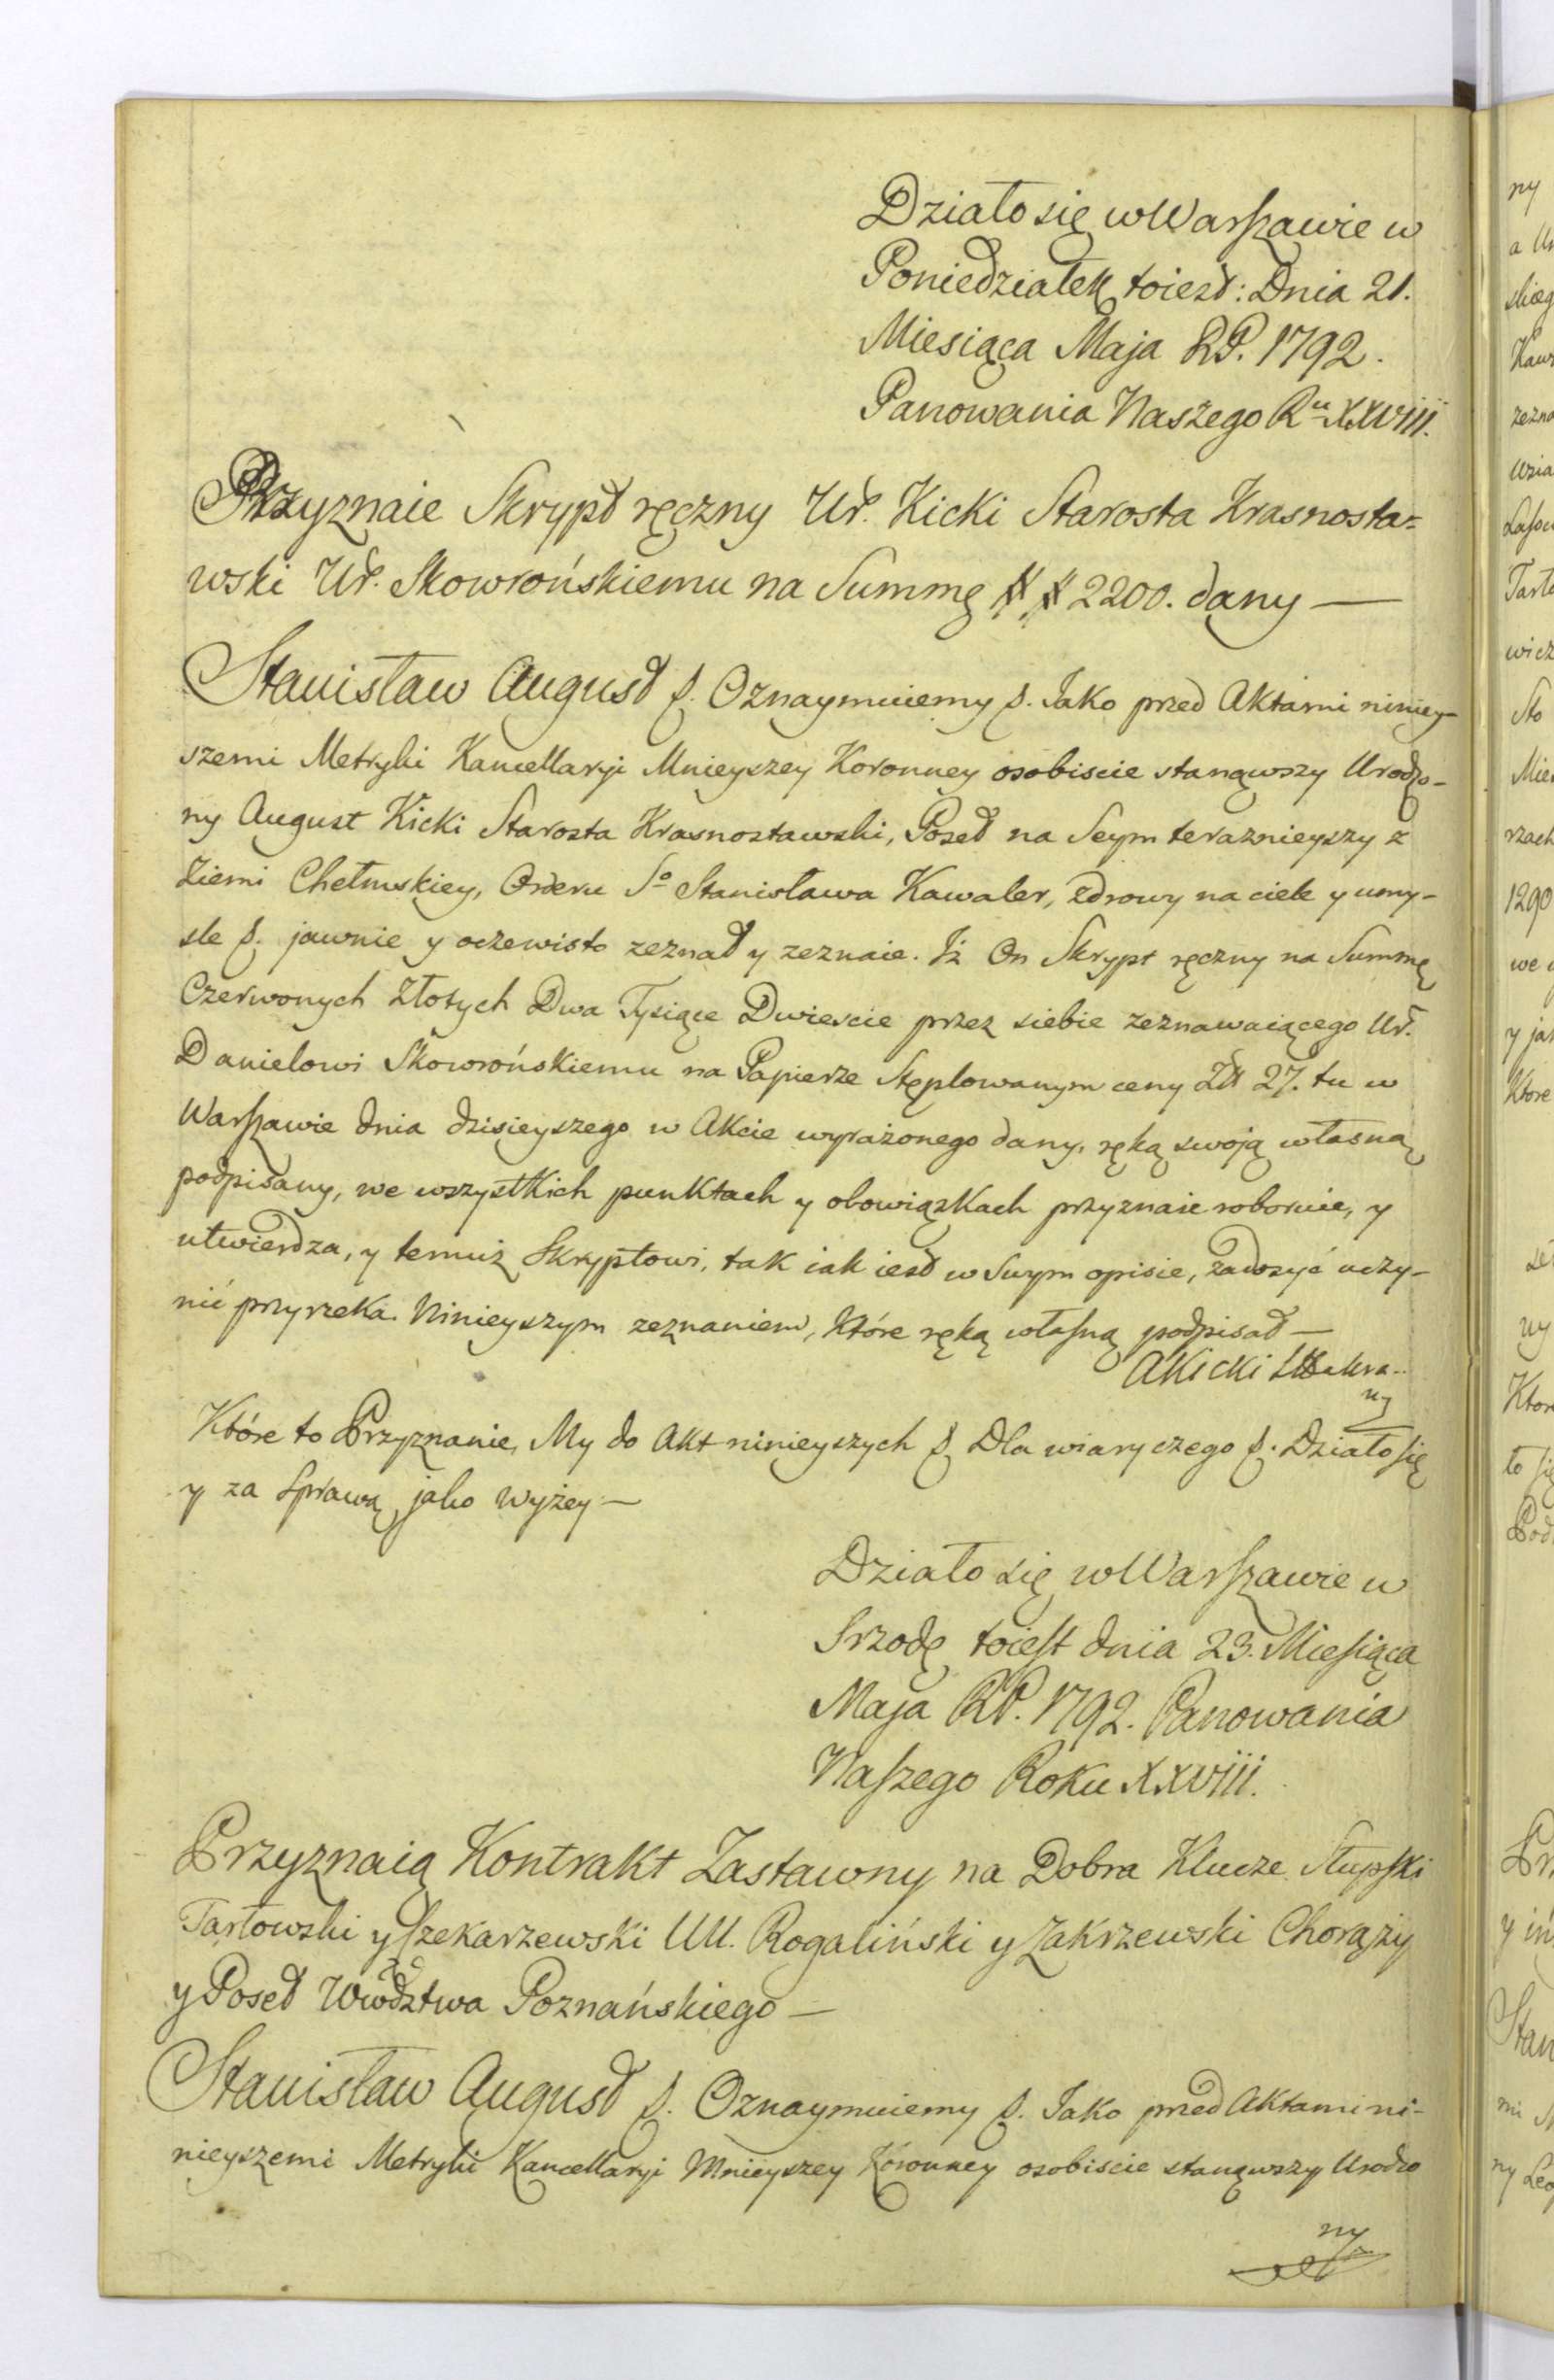 Działo się w Warszawie w
Poniedziałek toiest: Dnia 21.
Miesiąca Maja RP. 1792.
Panowania Naszego Ru XXVIII.
Przyznaie Skrypt ręczny Ur. Kicki Starosta Krasnosta=
wski Ur. Skowrońskiemu na Summę 2200. dany —
Stanisław August Oznaymuiemy Jako przed Aktami niniey-
szemi Metryki Kancellaryi Mnieyszey Koronney osobiscie stanąwszy Urodzo-
ny August Kicki Starosta Krasnostawski, Poseł na Seym teraznieyszy z
Ziemi Chełmskiey, Orderu So Stanisława Kawaler, zdrowy na ciele y umy-
sle jawnie y oczewisto zeznał y zeznaie. Iż On Skrypt ręczny na Summę
Czerwonych Złotych Dwa Tysiące Dwiescie przez siebie zeznawaiącego Ur.
Danielowi Skowrońskiemu na Papierze Stęplowanym ceny Zł 27. tu w
Warszawie dnia dzisieyszego w Akcie wyrażonego dany, ręką swoią własną
podpisany, we wszystkich punktach y obowiązkach przyznaie roboruie, y
utwierdza, y temuż Skryptowi, tak iak iest w Swym opisie, zadosyć uczy-
nić przyrzeka. Ninieyszym zeznaniem, Które ręką własną podpisał —
AKicki
Które to Przyznanie, My do Akt ninieyszych Dla wiary czego Działo się
y za Sprawą jako wyżey —
ny
Działo się w Warszawie w
Srzodę toiest dnia 23. Miesiąca
Maja RP. 1792. Panowania
Naszego Roku XXVIII.
Przyznaią Kontrakt Zastawny na Dobra Klucze Słupski
Tarłowski y Szekarzewski UU. Rogaliński y Zakrzewski Chorąży
y Poseł Wwdztwa Poznańskiego —
Stanisław August Oznaymuiemy Jako przed Aktami ni-
nieyszemi Metryki Kancellaryi Mnieyszey Koronney osobiscie stanąwszy Urodzo
ny